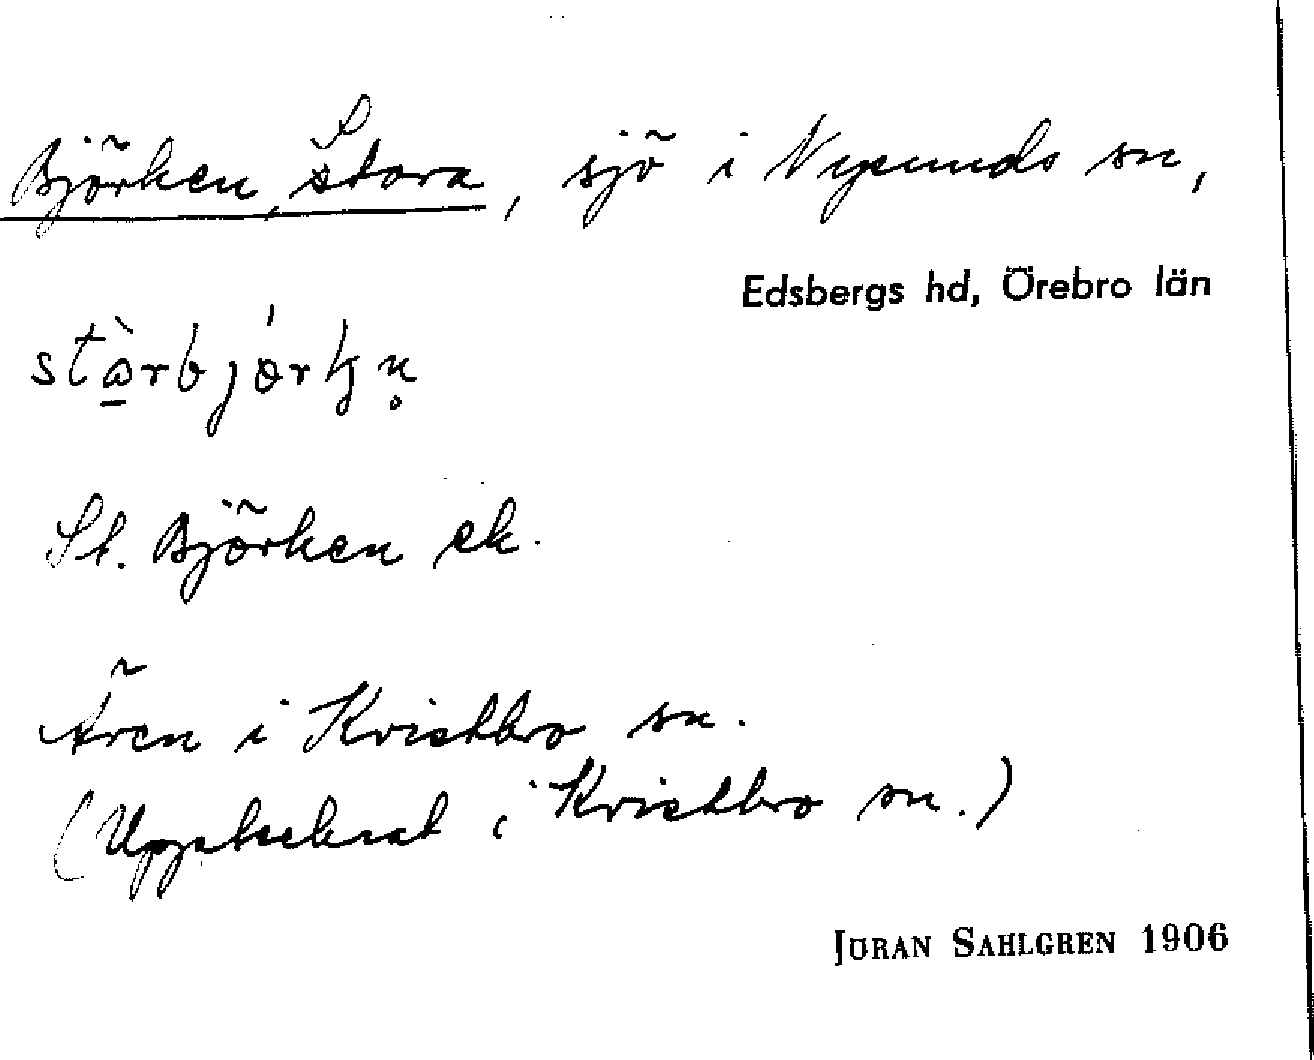 Björken, Stora, sjö i Nysunds sn,
Edsbergs hd, Örebro län
stɷ̀rbjǿrkn̥
St. Björken ek.
i Kvistbro sn.
(Uppskrivet i Kvistbro sn.)
JÖRAN SAHLGREN 1906